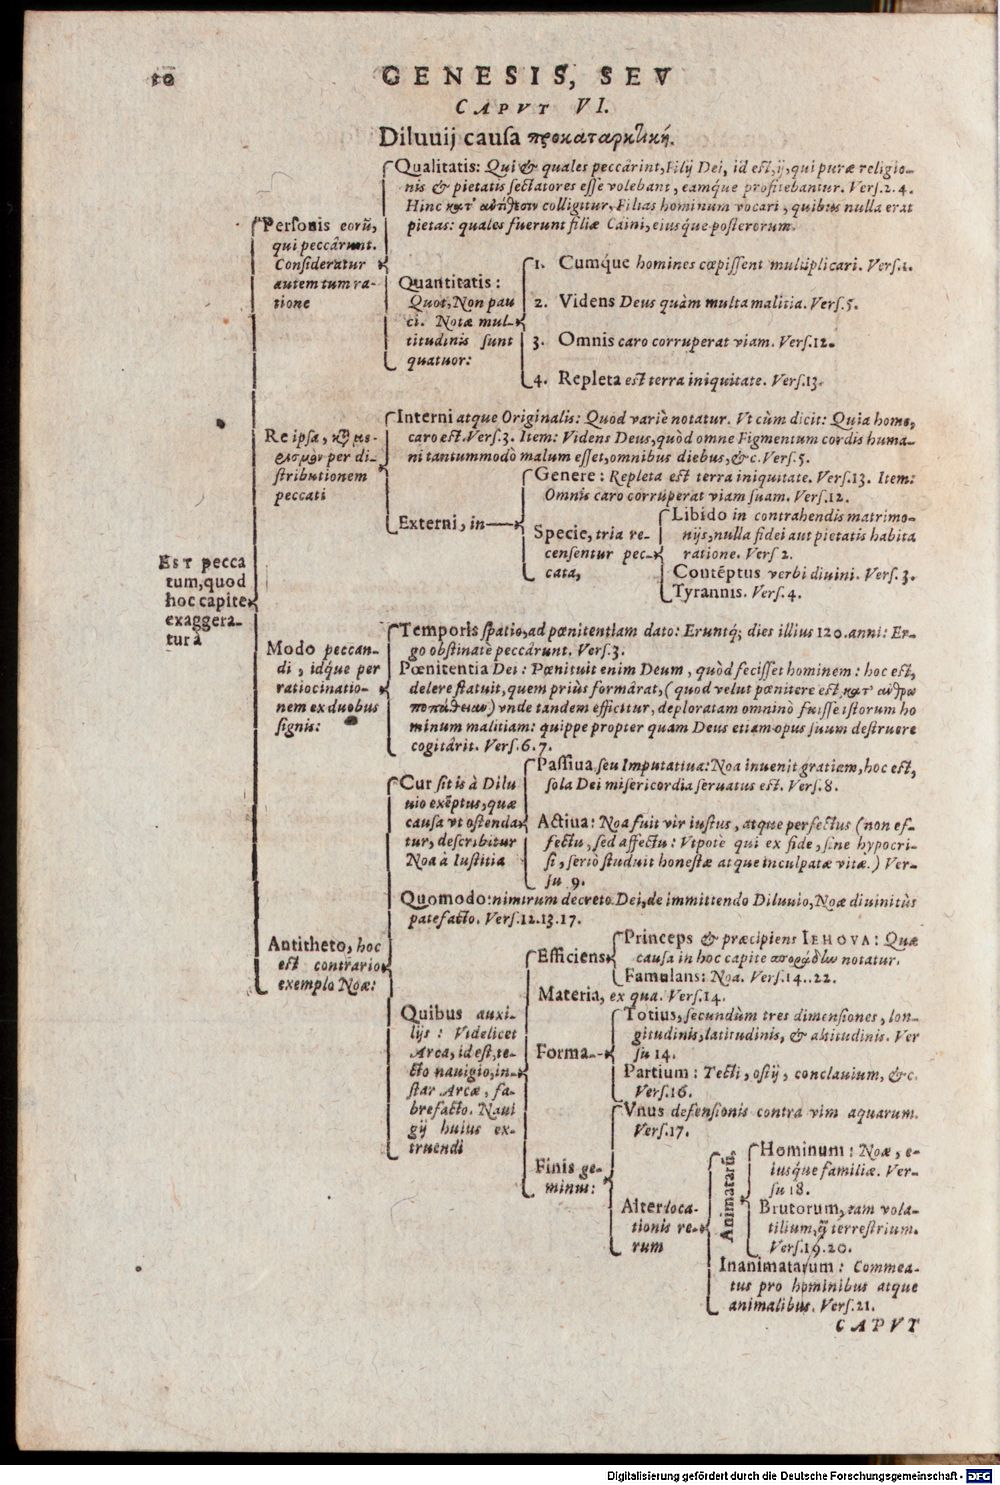 10
GENESIS, SEV
CAPVT VI.
Diluuij causa προκαταρκτική.
Qualitatis: Qui & quales peccârint, Filij Dei, id est, ij, qui puræ religio-
nis & pietatis sectatores esse volebant, eamq́ue profitebantur. Vers. 2. 4.
Hinc κατ' ἀντίθεσιν colligitur, Filias hominum vocari, quibus nulla erat
pietas: quales fuerunt filiæ Caini, eiusq́ue posterorum.
Personis eorũ,
qui peccârunt.
Consideratur
autem tum ra-
tione
Quantitatis:
Quot, Non pau
ci. Notæ mul-
titudinis sunt
quatuor:
1. Cumq́ue homines cœpissent multiplicari. Vers. 1.
2. Videns Deus quàm multa malitia. Vers. 5.
3. Omnis caro corruperat viam. Vers. 12.
4. Repleta est terra iniquitate. Vers. 13.
Re ipsa, κỳ με-
ρισμὸν per di-
stributionem
peccati
Interni atque Originalis: Quod variè notatur. Vt cùm dicit: Quia homo,
caro est. Vers. 3. Item: Videns Deus, quòd omne Figmentum cordis huma-
ni tantummodò malum esset, omnibus diebus, &c. Vers. 5.
Externi, in
Genere: Repleta est terra iniquitate. Vers. 13. Item:
Omnis caro corruperat viam suam. Vers. 12.
Specie, tria re-
censentur pec-
cata,
Libido in contrahendis matrimo-
nijs, nulla fidei aut pietatis habita
ratione. Vers 2.
Contẽptus verbi diuini. Vers. 3.
Tyrannis. Vers. 4.
EST pecca
tum, quod
hoc capite
exaggera-
tur à
Modo peccan-
di, idq́ue per
ratiocinatio-
nem ex duobus
signis:
Temporis spatio, ad pœnitentiam dato: Eruntq́; dies illius 120. anni: Er-
go obstinatè peccârunt. Vers. 3.
Pœnitentia Dei: Pœnituit enim Deum, quòd fecisset hominem: hoc est,
delere statuit, quem priùs formârat, (quod velut pœnitere est κατ' ἀνθρω
ποπάθειαν) vnde tandem efficitur, deploratam omninò fuisse istorum ho
minum malitiam: quippe propter quam Deus etiam opus suum destruere
cogitârit. Vers. 6. 7.
Antitheto, hoc
est contrario
exemplo Noæ:
Cur sit is à Dilu
uio exẽptus, quæ
causa vt ostenda
tur, describitur
Noa à Iustitia
Passiua, seu Imputatiua: Noa inuenit gratiam, hoc est,
sola Dei misericordia seruatus est. Vers. 8.
Actiua: Noa fuit vir iustus, atque perfectus (non ef-
fectu, sed affectu: Vtpote qui ex fide, sine hypocri-
si, seriò studuit honestæ atque inculpatæ vitæ.) Ver-
su 9.
Quomodo: nimirum decreto Dei, de immittendo Diluuio, Noæ diuinitùs
patefacto. Vers. 12. 13. 17.
Quibus auxi-
lijs: Videlicet
Arca, id est, te-
cto nauigio, in-
star Arcæ, fa-
brefacto. Naui
gij huius ex-
truendi
Efficiens
Princeps & præcipiens IEHOVA: Quæ
causa in hoc capite σποράδην notatur.
Famulans: Noa. Vers. 14..22.
Materia, ex qua. Vers. 14.
Forma
Totius, secundùm tres dimensiones, lon-
gitudinis, latitudinis, & altitudinis. Ver
su 14.
Partium: Tecti, ostij, conclauium, &c.
Vers. 16.
Finis ge-
minus:
Vnus defensionis contra vim aquarum.
Vers. 17.
Alter locationis re-
rum
Animatarũ,
Hominum: Noæ, e-
iusque familiæ. Ver-
su 18.
Brutorum, tam vola-
tilium, q̃ terrestrium.
Vers. 19. 20.
Inanimatarum: Commea-
tus pro hominibus atque
animalibus. Vers. 21.
CAPVT
Digitalisierung gefördert durch die Deutsche Forschungsgemeinschaft - DFG